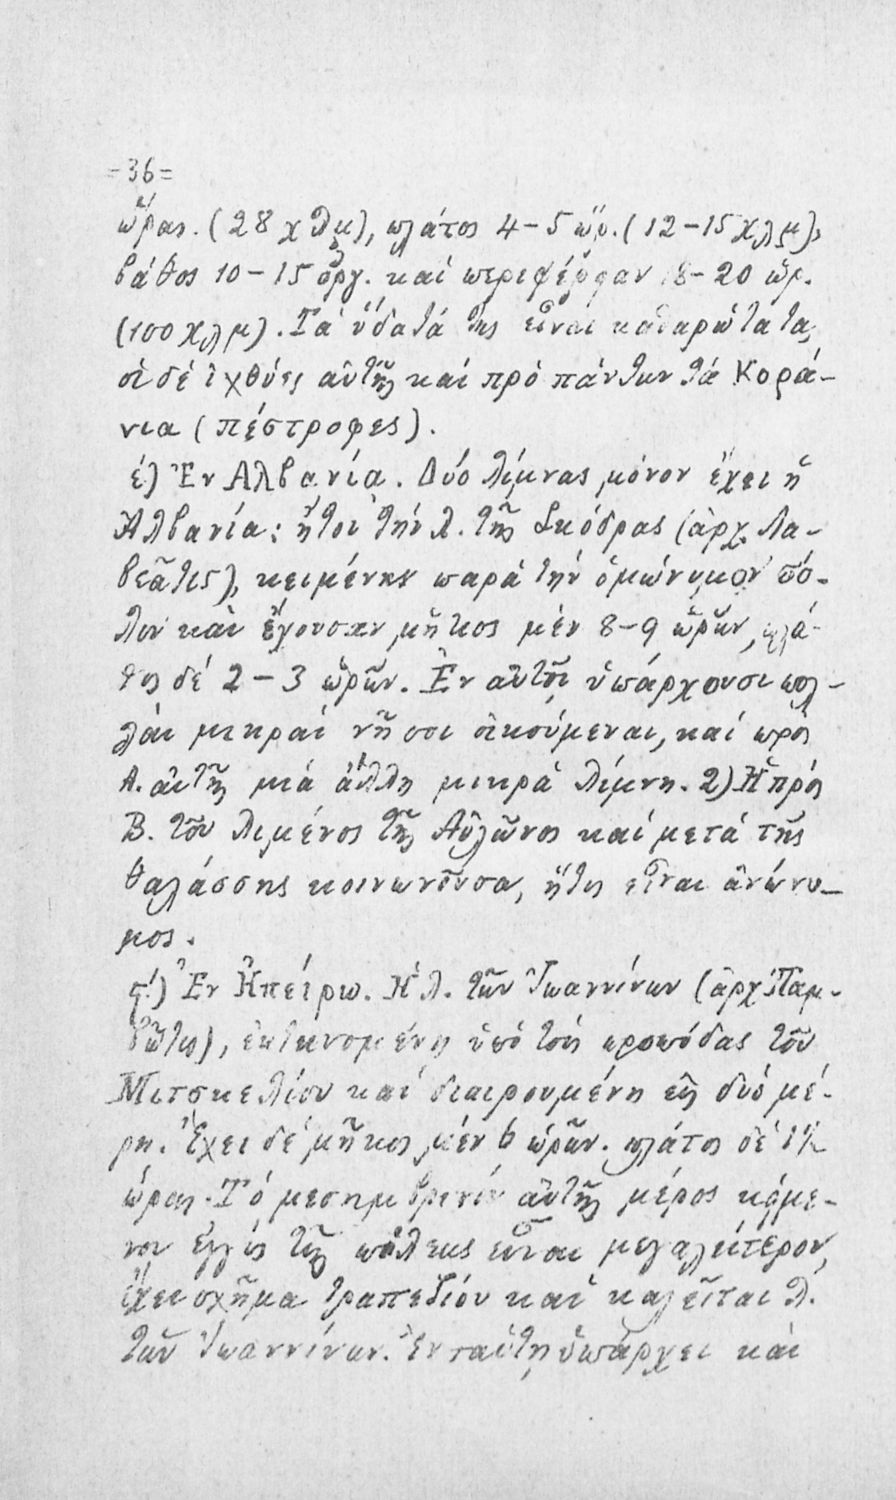 =36=
ὥρας. (28 χλμ), πλάτος 4-5 ὥρ. (12-15 χλμ),
βάθος 10-15 ὀργ. καί περιφέρειαν 18-20 ὡρ.
(100 χλμ). Τά ὕδατά της εἶναι καθαρώτατα,
οἱ δέ ἰχθύες αὐτῆς καί πρό πάντων τά Κορά-
νια (πέστροφες).
έ) Ἐν Ἀλβανία. Δύο λίμνας μόνον ἔχει ἡ
Ἀλβανία: ἤτοι τήν λ. τῆς Σκόδρας (ἀρχ. Λα-
βεᾶτις), κειμένην παρά τήν ὁμώνυμον πό-
λιν καί ἔχουσαν μῆκος μέν 8-9 ὡρῶν, πλά-
τος δέ 2-3 ὡρῶν. Ἐν αὐτῇ ὑπάρχουσι πολ-
λαί μικραί νῆσοι οἰκούμεναι, καί πρός
Α. αὐτῆς μιά ἄλλη μικρά λίμνη. 2) Ἡ πρός
Β. τοῦ λιμένος τῆς Αὐλῶνος καί μετά τῆς
θαλάσσης κοινωνοῦσα, ἥτις εἶναι ἀνώνυ-
μος.
ς΄) Ἐν Ἠπείρω. Ἡ λ. τῶν Ἰωαννίνων (ἀρχ. Παμ-
βῶτις), ἐκτεινομένη ὑπό τούς προπόδας τοῦ
Μιτσκελίου καί διαιρουμένη εἰς δυό μέ-
ρη. Ἔχει δέ μῆκος μέν 6 ὡρῶν. πλάτος δέ 1½
ὥρας. Τό μεσημβρινόν αὐτῆς μέρος κείμε-
νον ἐγγύς τῆς πόλεως εἶναι μεγαλείτερον,
ἔχει σχῆμα τραπεζίου καί καλεῖται λ.
τῶν Ἰωαννίνων. Ἐν ταύτῃ ὑπάρχει καί